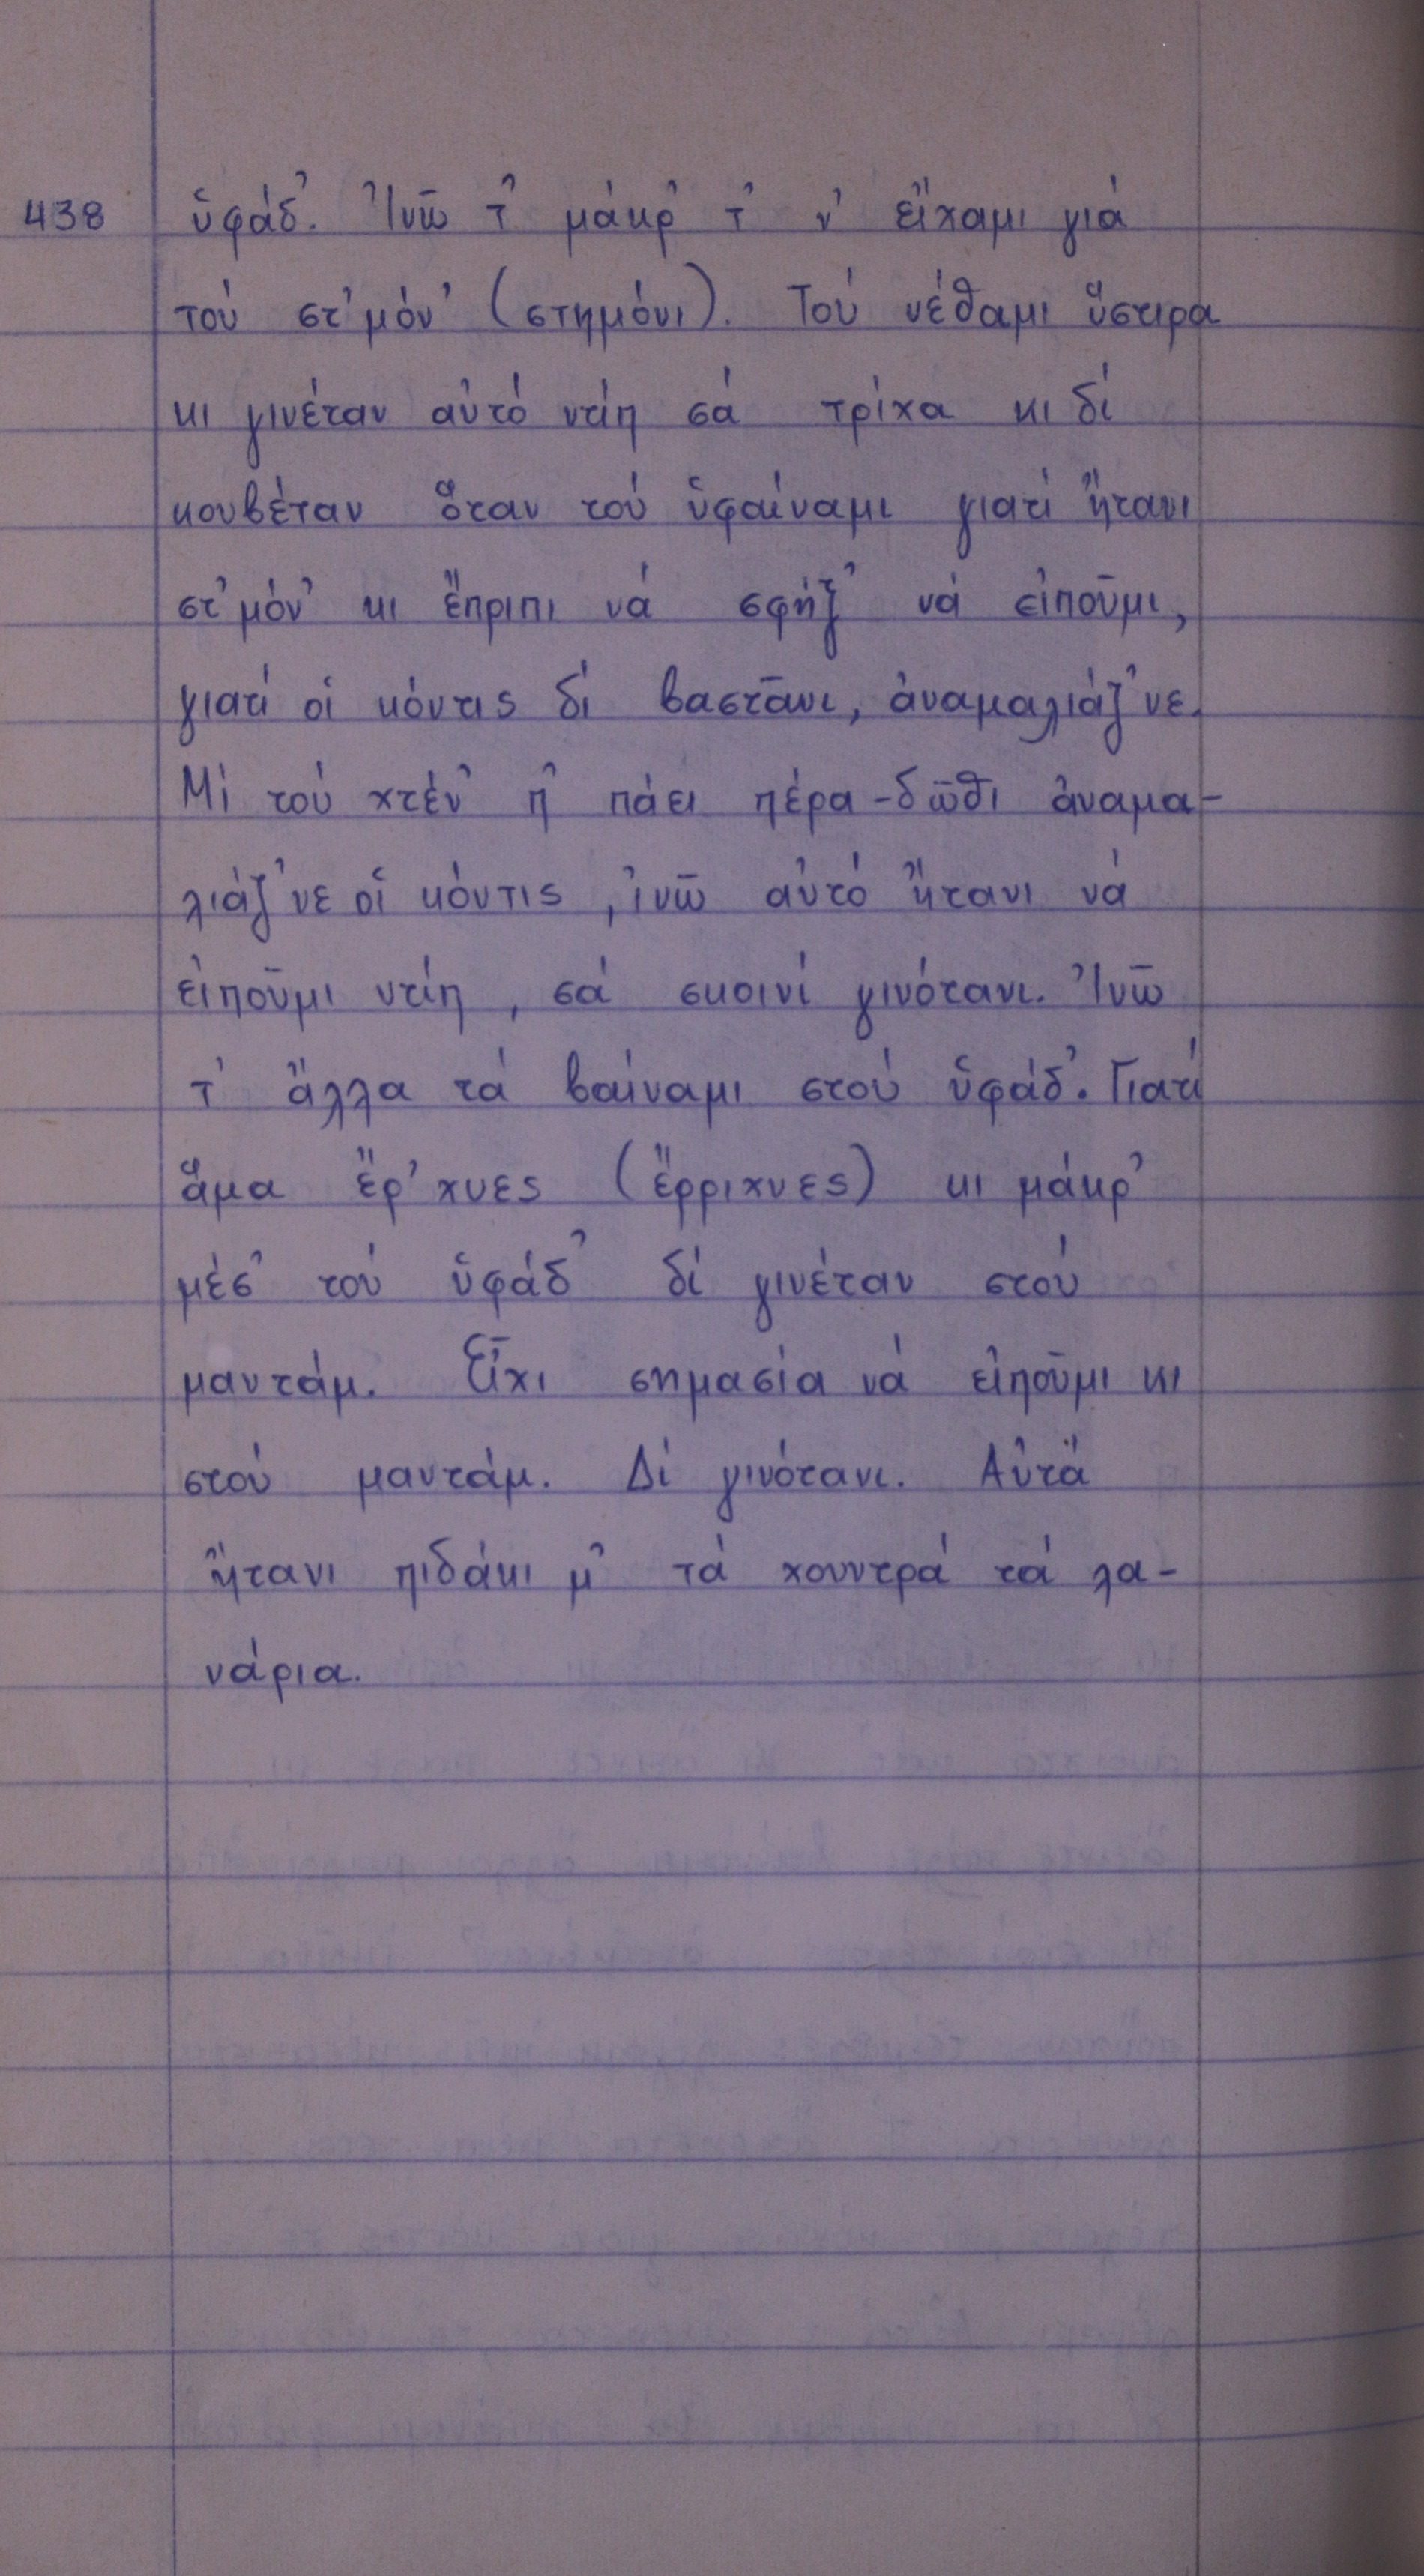 438 ὑφάδ'. Ἰνῶ τ' μάκρ' τ' ν' εἴχαμι γιά
τού στ'μόν' (στημόνι). Τού νέθαμι ὕστιρα
κι γινέταν αὐτό ντίπ σά τρίχα κι δί
κουβέταν ὅταν τού ὑφαίναμι γιατί ἤτανι
στ'μόν' κι ἔπριπι νά σφήξ' νά εἰποῦμι,
γιατί οἱ κόντις δί βαστᾶνι, ἀναμαλιάζ'νε.
Μί τού χτέν' π' πάει πέρα-δῶθι ἀναμα-
λιάζ'νε οἱ κόντις, ἰνῶ αὐτό ἤτανι νά
εἰποῦμι ντίπ, σά σκοινί γινότανι. Ἰνῶ
τ' ἄλλα τά βαίναμι στού ὑφάδ'. Γιατί
ἅμα ἔρ'χνες (ἔρριχνες) κι μάκρ'
μέσ' τού ὑφάδ' δί γινέταν στού
μαντάμ. Εἶχι σημασία νά εἰποῦμι κι
στού μαντάμ. Δί γινότανι. Αὐτά
ἤτανι πιδάκι μ' τά χουντρά τά λα-
νάρια.